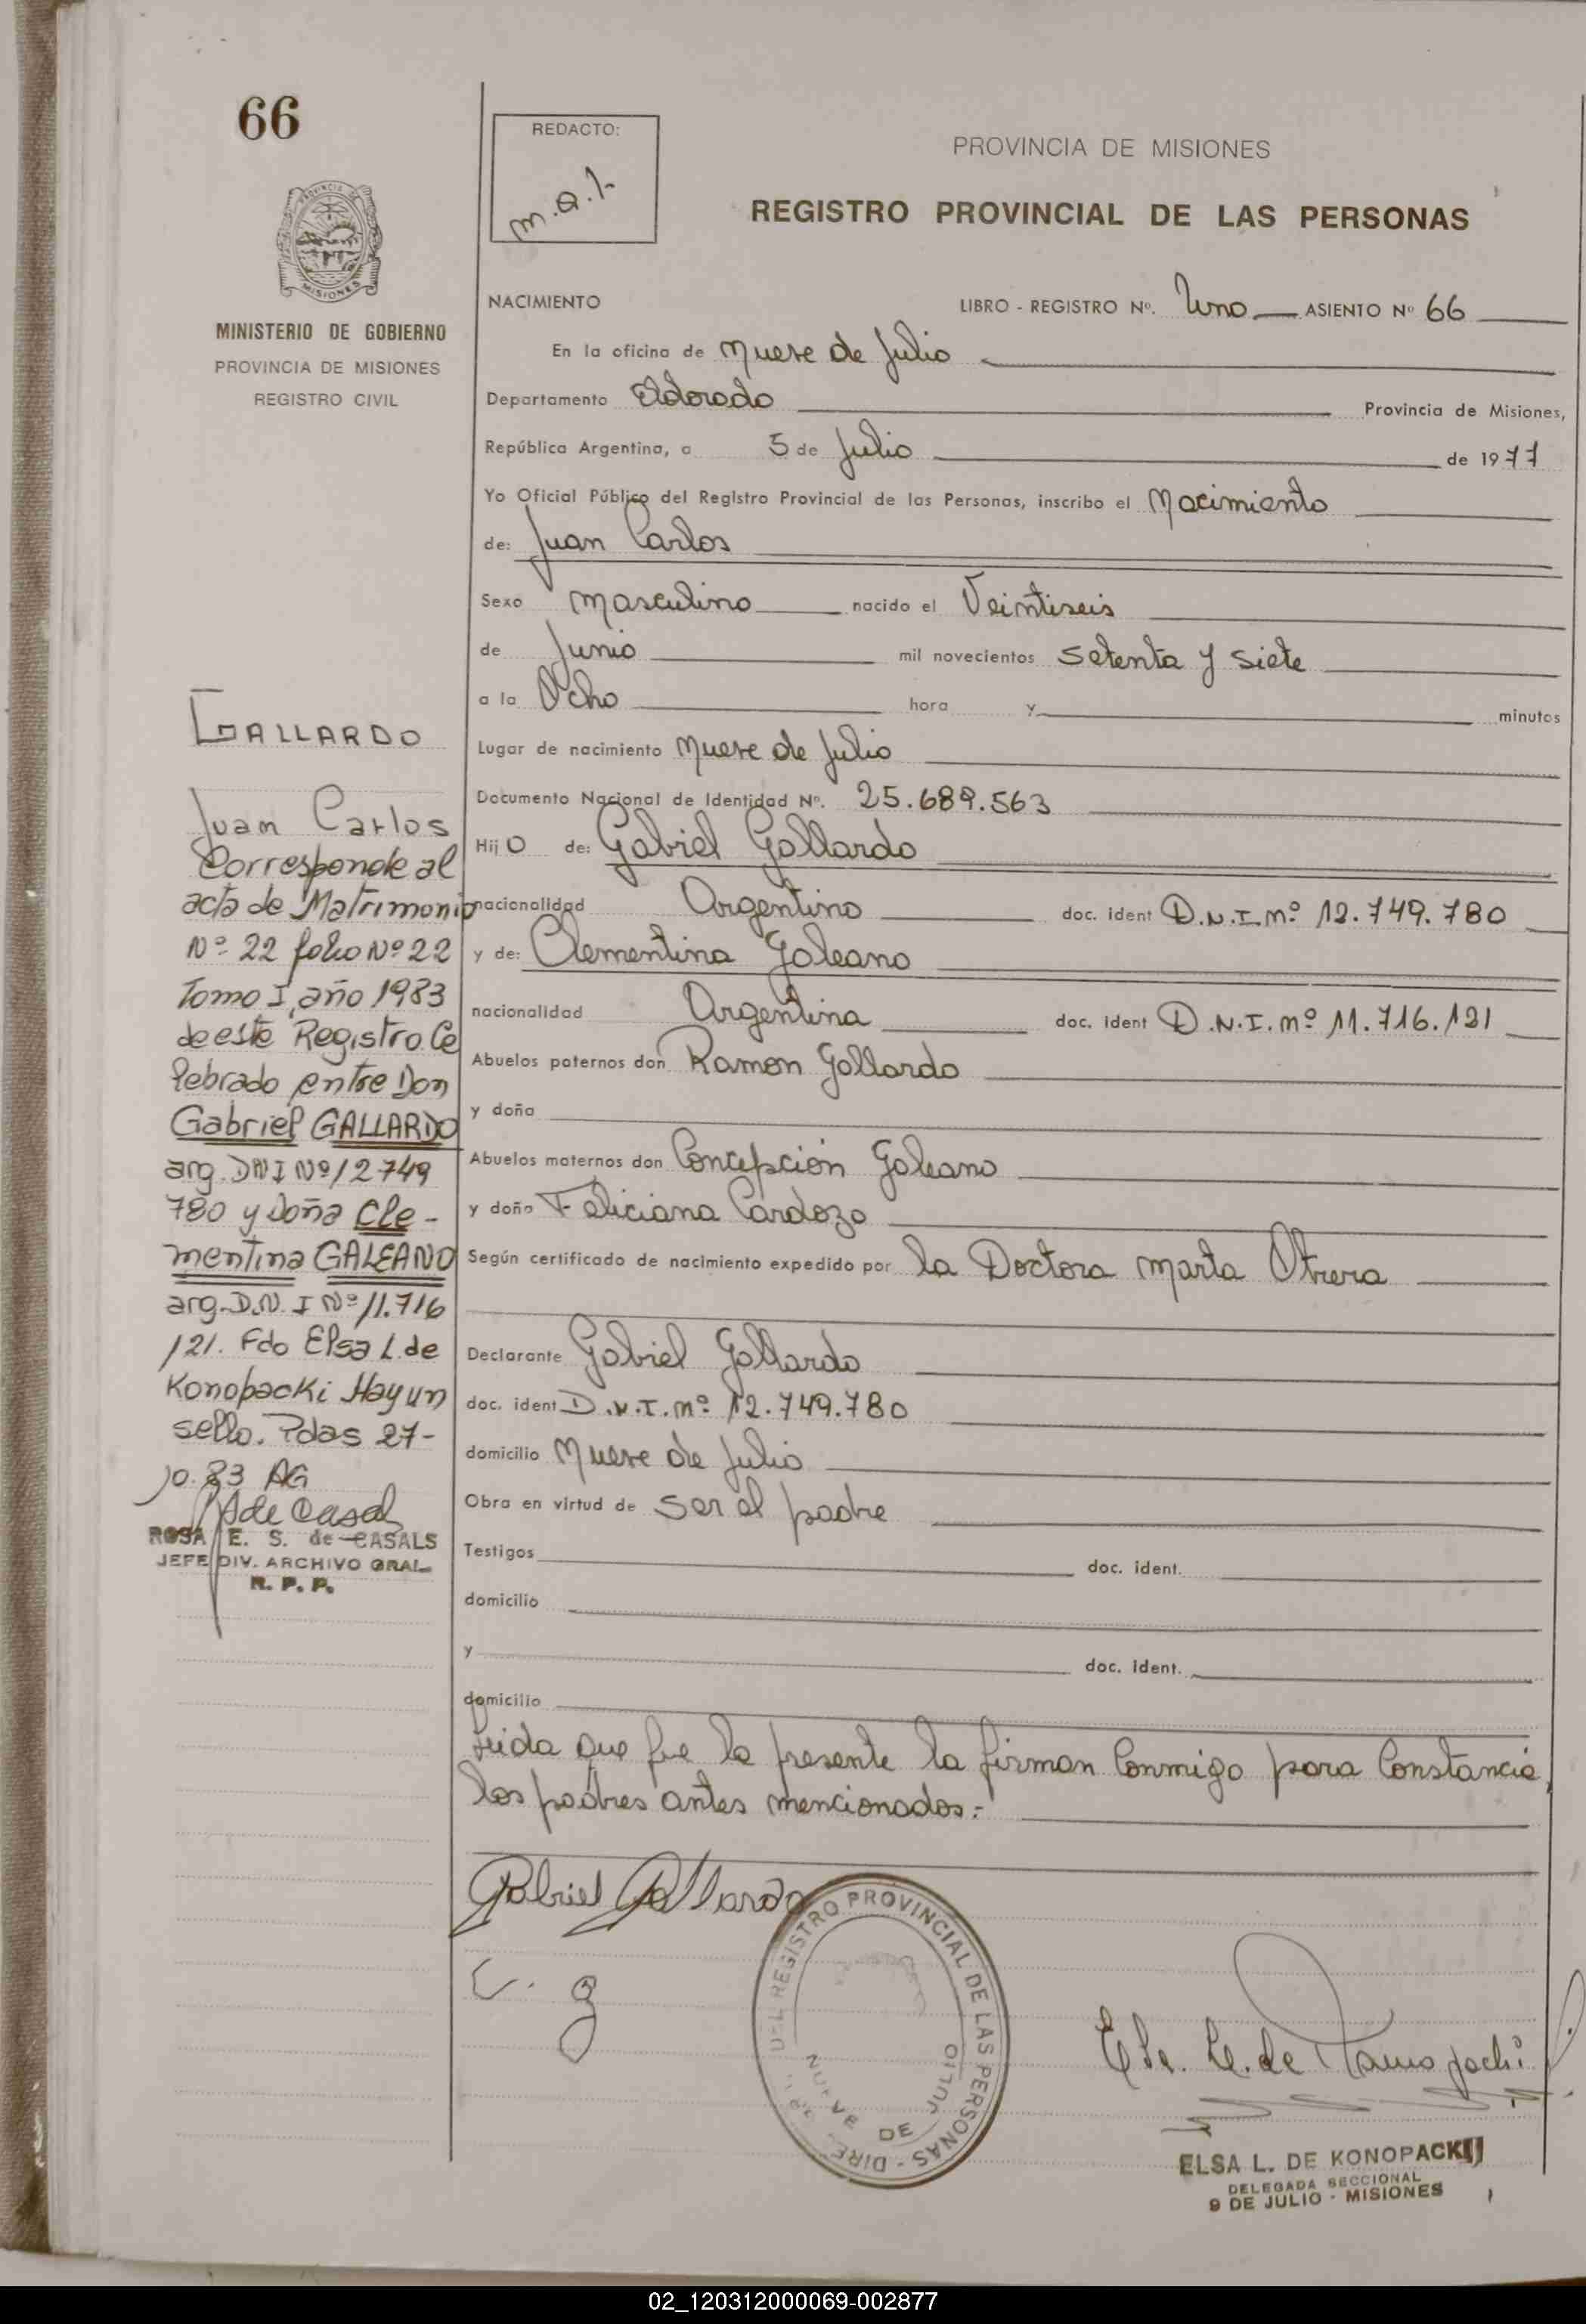 66
REDACTO:
m.a.l.
PROVINCIA DE MISIONES
REGISTRO PROVINCIAL DE LAS PERSONAS
PROVINCIA DE
MISIONES
MINISTERIO DE GOBIERNO
PROVINCIA DE MISIONES
REGISTRO CIVIL
NACIMIENTO LIBRO - REGISTRO Nº. Uno ASIENTO Nº 66
En la oficina de Nueve de Julio
Departamento Eldorado Provincia de Misiones,
República Argentina, a 5 de Julio de 1977
Yo Oficial Público del Registro Provincial de las Personas, inscribo el Nacimiento
de: Juan Carlos
Sexo masculino nacido el Veintiseis
de Junio mil novecientos setenta y siete
a la Ocho hora y minutos
Lugar de nacimiento Nueve de Julio
Documento Nacional de Identidad Nº. 25.689.563
Hijo de: Gabriel Gallardo
nacionalidad Argentino doc. ident D.N.I. nº 12.749.780
y de: Clementina Galeano
nacionalidad Argentina doc. ident D.N.I. nº 11.716.121
Abuelos paternos don Ramon Gallardo
y doña
Abuelos maternos don Concepción Galeano
y doña Feliciana Cardozo
Según certificado de nacimiento expedido por la Doctora Marta Otrera
Declarante Gabriel Gallardo
doc. ident D.N.I. nº 12.749.780
domicilio Nueve de Julio
Obra en virtud de ser el padre
Testigos doc. ident.
domicilio
y doc. ident.
domicilio
Leida que fue la presente la firman Conmigo para Constancia,
los padres antes mencionados.-
GALLARDO
Juan Carlos
Corresponde al
acta de Matrimonio
Nº 22 folio Nº 22
Tomo I, año 1983
de este Registro Ce
lebrado entre Don
Gabriel GALLARDO
arg. DNI Nº 12749
780 y Doña Cle-
mentina GALEANO
arg. D.N.I Nº 11.716
121. Fdo Elsa L. de
Konopacki Hay un
sello. Pdas 27-
10.83 AG
ROSA E. S. de CASALS
JEFE DIV. ARCHIVO GRAL.
R. P. P.
Gabriel Gallardo
C. G
REGISTRO PROVINCIAL DE LAS PERSONAS - DIRE
NUEVE DE JULIO
ELSA L. DE KONOPACKIJ
DELEGADA SECCIONAL
9 DE JULIO - MISIONES
02_120312000069-002877